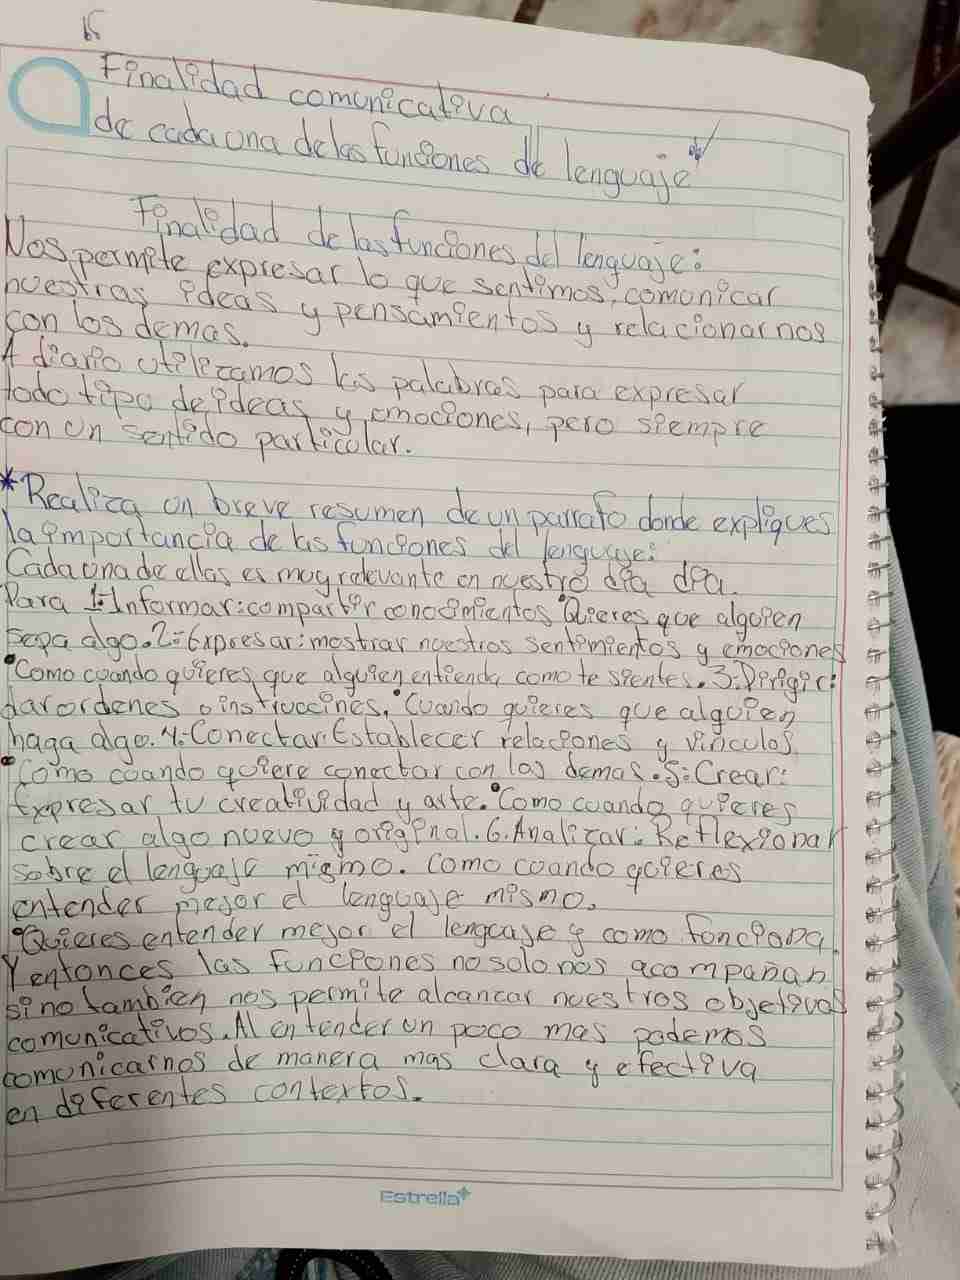 Finalidad comunicativa
de cada una de las funciones de lenguaje
Finalidad de las funciones del lenguaje:
Nos permite expresar lo que sentimos, comunicar
nuestras ideas y pensamientos y relacionarnos
con los demas.
A diario utilizamos las palabras para expresar
todo tipo de ideas y emociones, pero siempre
con un sentido particular.
*Realiza un breve resumen de un parrafo donde expliques
la importancia de las funciones del lenguaje:
Cada una de ellas es muy relevante en nuestro dia dia.
Para 1:Informar:compartir conocimientos •Quieres que alguien
sepa algo.2=Expresar:mostrar nuestros sentimientos y emociones
•Como cuando quieres que alguien entienda como te sientes.3:Dirigir:
dar ordenes o instruccines, •Cuando quieres que alguien
haga algo.4:Conectar:Establecer relaciones y vinculos
•Como cuando quiere conectar con los demas.5=Crear:
Expresar tu creatividad y arte.•Como cuando quieres
crear algo nuevo y original.6.Analizar:Reflexionar
sobre el lenguaje mismo. Como cuando quieres
entender mejor el lenguaje mismo.
•Quieres entender mejor el lenguaje y como funciona.
Y entonces las funciones no solo nos acompañan
sino tambien nos permite alcanzar nuestros objetivos
comunicativos. Al entender un poco mas podemos
comunicarnos de manera mas clara y efectiva
en diferentes contextos.
Estrella